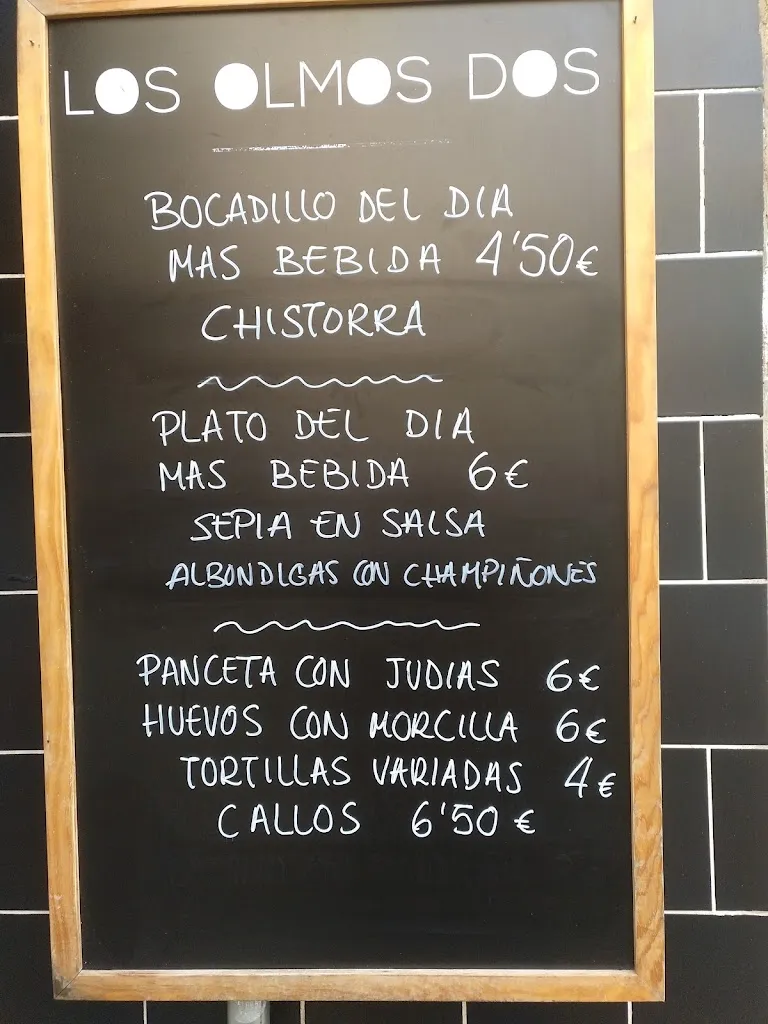 LOS OLMOS DOS
BOCADILLO DEL DIA
MAS BEBIDA 4'50€
CHISTORRA
PLATO DEL DIA
MAS BEBIDA 6€
SEPIA EN SALSA
ALBONDIGAS CON CHAMPIÑONES
PANCETA CON JUDIAS 6€
HUEVOS CON MORCILLA 6€
TORTILLAS VARIADAS 4€
CALLOS 6'50€